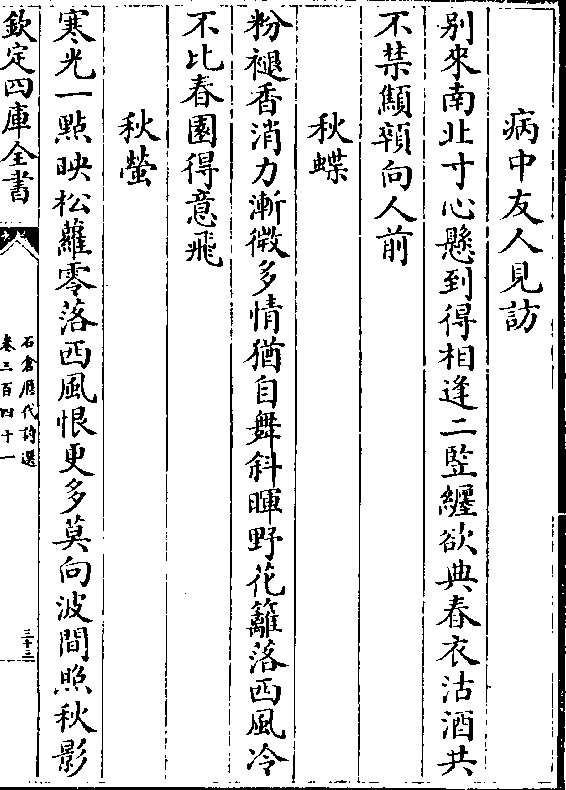 病中友人見訪
别來南北寸心懸到得相逢二監纏欲典春衣沽酒共
不禁顦顇向人前
秋蝶
粉褪香消力漸微多情猶自舞斜暉野花籬落西風冷
不比春園得意飛
秋螢
寒光一點映松蘿零落西風恨更多莫向波間照秋影
欽定四庫全書
石倉歷代詩選
卷三百四十一
三十三